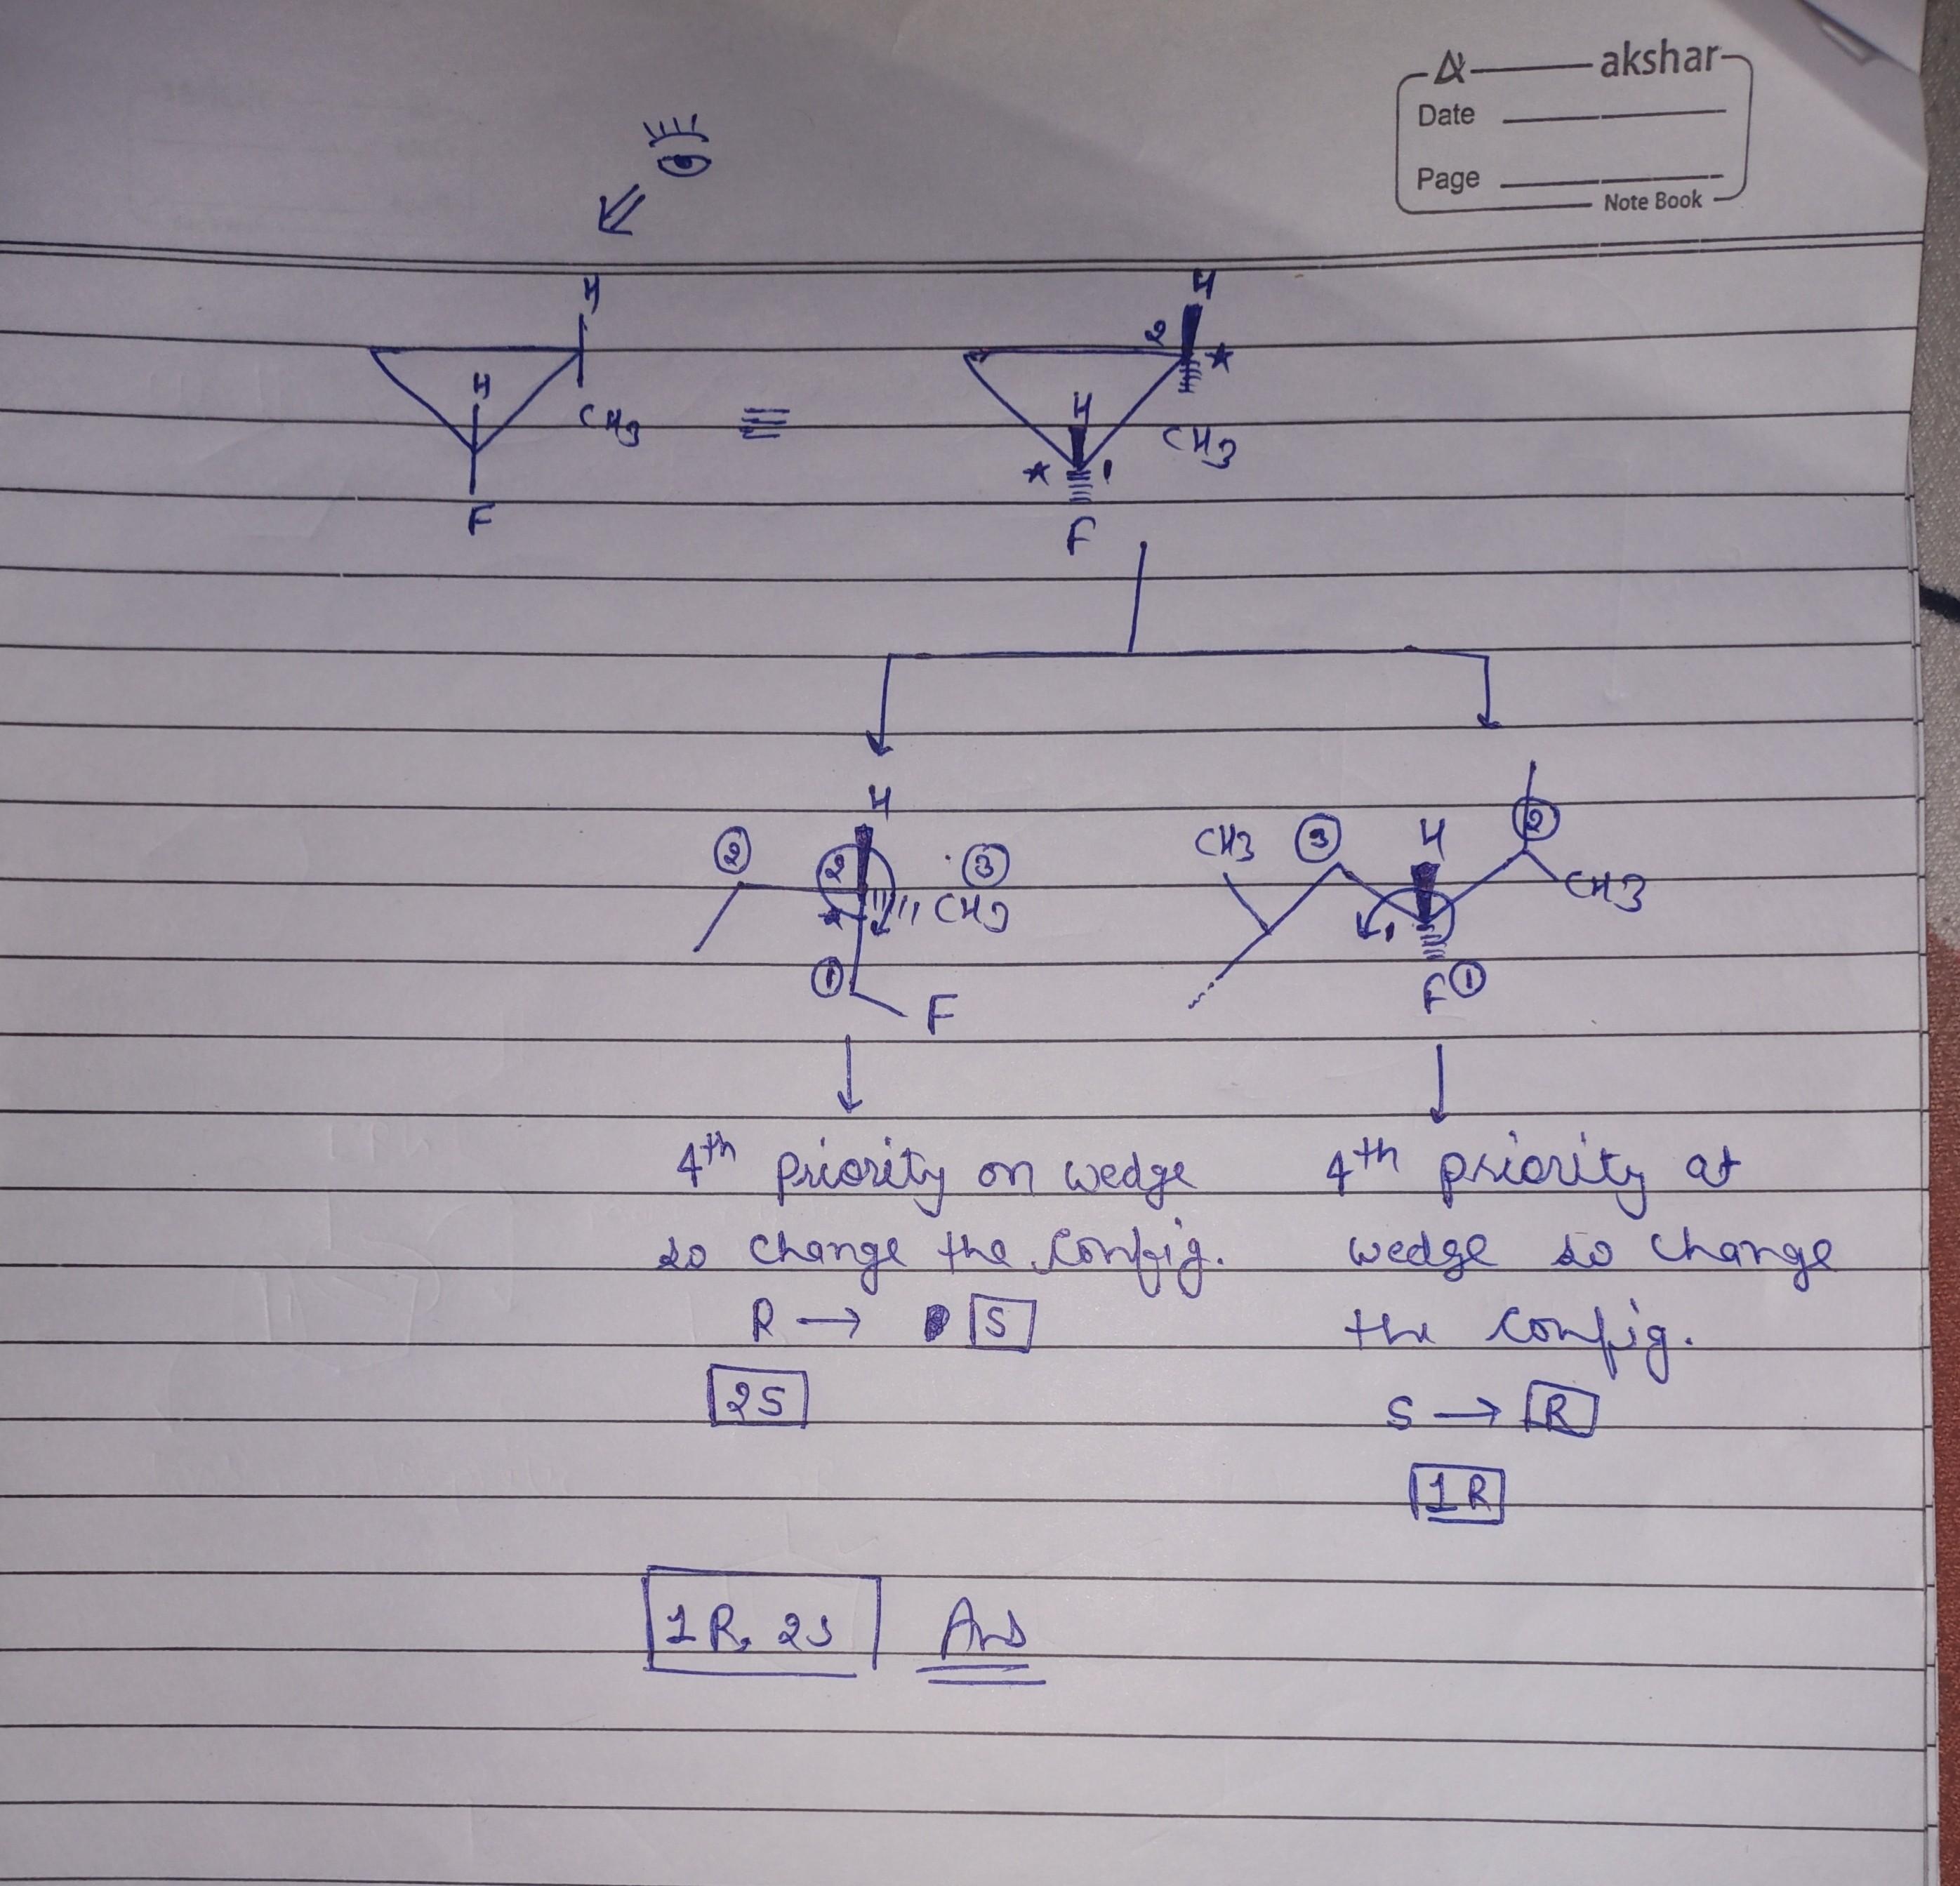 akshar
Date
Page
Note Book
H
H
CH3
F
≡
H
2
★
H
CH3
★ 1
F
H
② 2 ③
★ CH3
① F
CH3 ③ H ②
CH3
1
F ①
4th priority on wedge
so change the config.
R → S
2S
4th priority at
wedge so change
the config.
S → R
1R
1R, 2S Ans